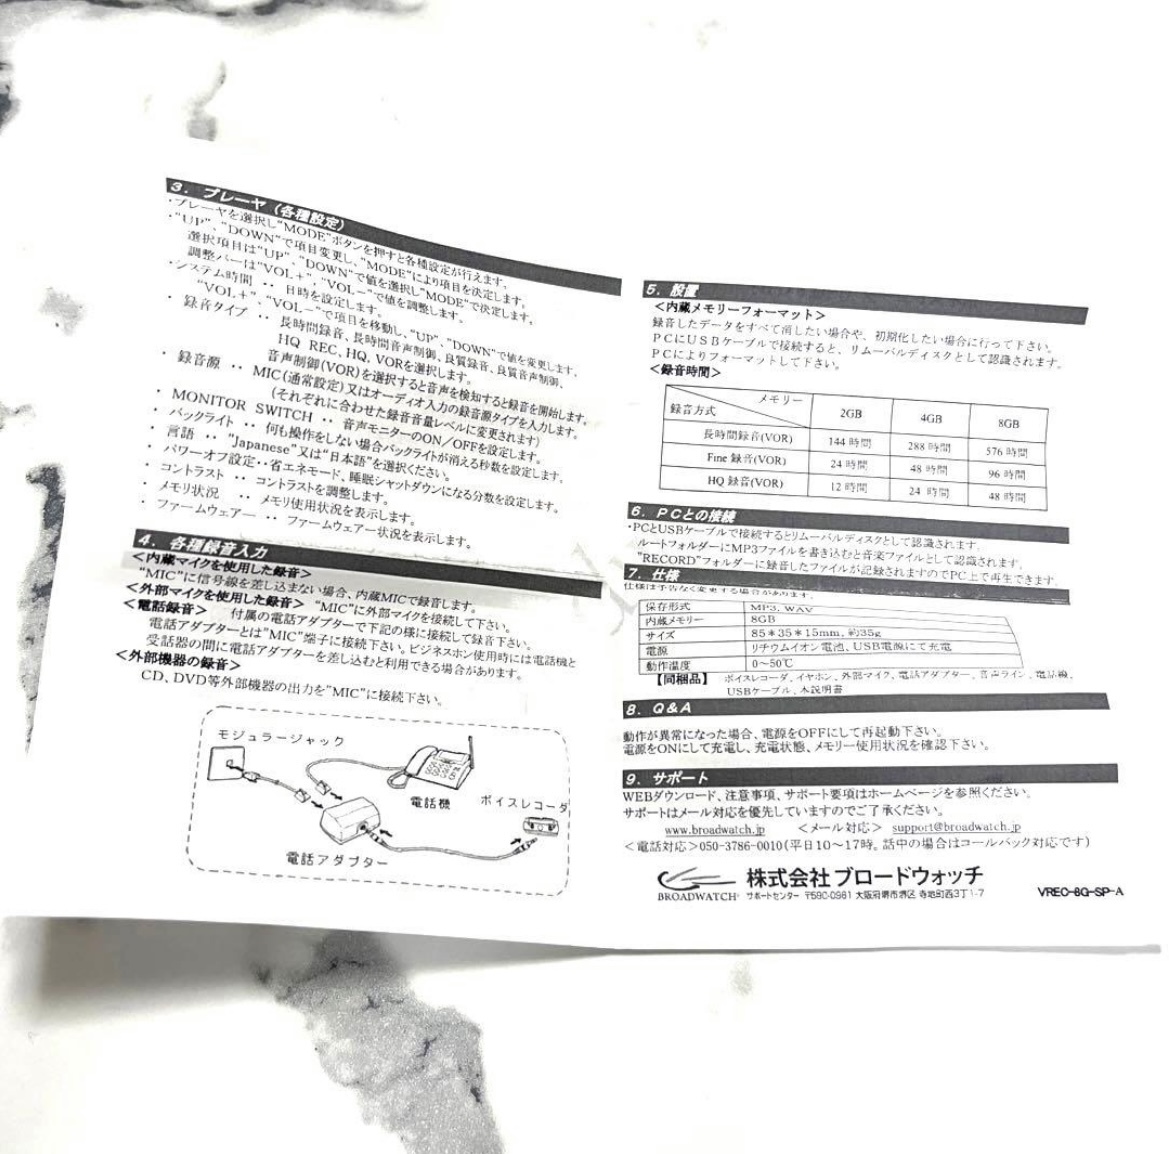 3. プレーヤ (各種設定)
・プレーヤを選択し"MODE"ボタンを押すと各種設定が行えます。
・"UP"、"DOWN"で項目変更し、"MODE"により項目を決定します。
選択項目は"UP"、"DOWN"で値を選択し"MODE"で決定します。
調整バーは"VOL+"、"VOL-"で値を調整します。
・システム時間 ・・ 日時を設定します。
"VOL+"、"VOL-"で項目を移動し、"UP"、"DOWN"で値を変更します。
・ 録音タイプ ・・ 長時間録音、長時間音声制御、良質録音、良質音声制御、
HQ REC、HQ、VORを選択します。
音声制御(VOR)を選択すると音声を検知すると録音を開始します。
・ 録音源 ・・ MIC(通常設定)又はオーディオ入力の録音源タイプを入力します。
(それぞれに合わせた録音音量レベルに変更されます)
・ MONITOR SWITCH ・・ 音声モニターのON/OFFを設定します。
・ バックライト ・・ 何も操作をしない場合バックライトが消える秒数を設定します。
・ 言語 ・・ "Japanese"又は"日本語"を選択ください。
・ パワーオフ設定・・省エネモード、睡眠シャットダウンになる分数を設定します。
・ コントラスト ・・ コントラストを調整します。
・ メモリ状況 ・・ メモリ使用状況を表示します。
・ ファームウェアー ・・ ファームウェアー状況を表示します。
4. 各種録音入力
<内蔵マイクを使用した録音>
"MIC"に信号線を差し込まない場合、内蔵MICで録音します。
<外部マイクを使用した録音> "MIC"に外部マイクを接続して下さい。
<電話録音> 付属の電話アダプターで下記の様に接続して録音下さい。
電話アダプターとは"MIC"端子に接続下さい。ビジネスホン使用時には電話機と
受話器の間に電話アダプターを差し込むと利用できる場合があります。
<外部機器の録音>
CD、DVD等外部機器の出力を"MIC"に接続下さい。
モジュラージャック
電話機
ボイスレコーダ
電話アダプター
5. 設置
<内蔵メモリーフォーマット>
録音したデータをすべて消したい場合や、初期化したい場合に行って下さい。
PCにUSBケーブルで接続すると、リムーバルディスクとして認識されます。
PCによりフォーマットして下さい。
<録音時間>
メモリー
録音方式 2GB 4GB 8GB
長時間録音(VOR) 144 時間 288 時間 576 時間
Fine 録音(VOR) 24 時間 48 時間 96 時間
HQ 録音(VOR) 12 時間 24 時間 48 時間
6. PCとの接続
・PCとUSBケーブルで接続するとリムーバルディスクとして認識されます。
ルートフォルダーにMP3ファイルを書き込むと音楽ファイルとして認識されます。
"RECORD"フォルダーに録音したファイルが記録されますのでPC上で再生できます。
7. 仕様
仕様は予告なく変更する場合があります。
保存形式 MP3、WAV
内蔵メモリー 8GB
サイズ 85*35*15mm、約35g
電源 リチウムイオン電池、USB電源にて充電
動作温度 0~50℃
【同梱品】 ボイスレコーダ、イヤホン、外部マイク、電話アダプター、音声ライン、電話線、
USBケーブル、本説明書
8. Q&A
動作が異常になった場合、電源をOFFにして再起動下さい。
電源をONにして充電し、充電状態、メモリー使用状況を確認下さい。
9. サポート
WEBダウンロード、注意事項、サポート要項はホームページを参照ください。
サポートはメール対応を優先していますのでご了承ください。
www.broadwatch.jp <メール対応> support@broadwatch.jp
<電話対応>050-3786-0010(平日10~17時。話中の場合はコールバック対応です)
株式会社 ブロードウォッチ
BROADWATCH サポートセンター 〒590-0981 大阪府堺市堺区 寺地町西3丁1-7
VREC-8G-SP-A